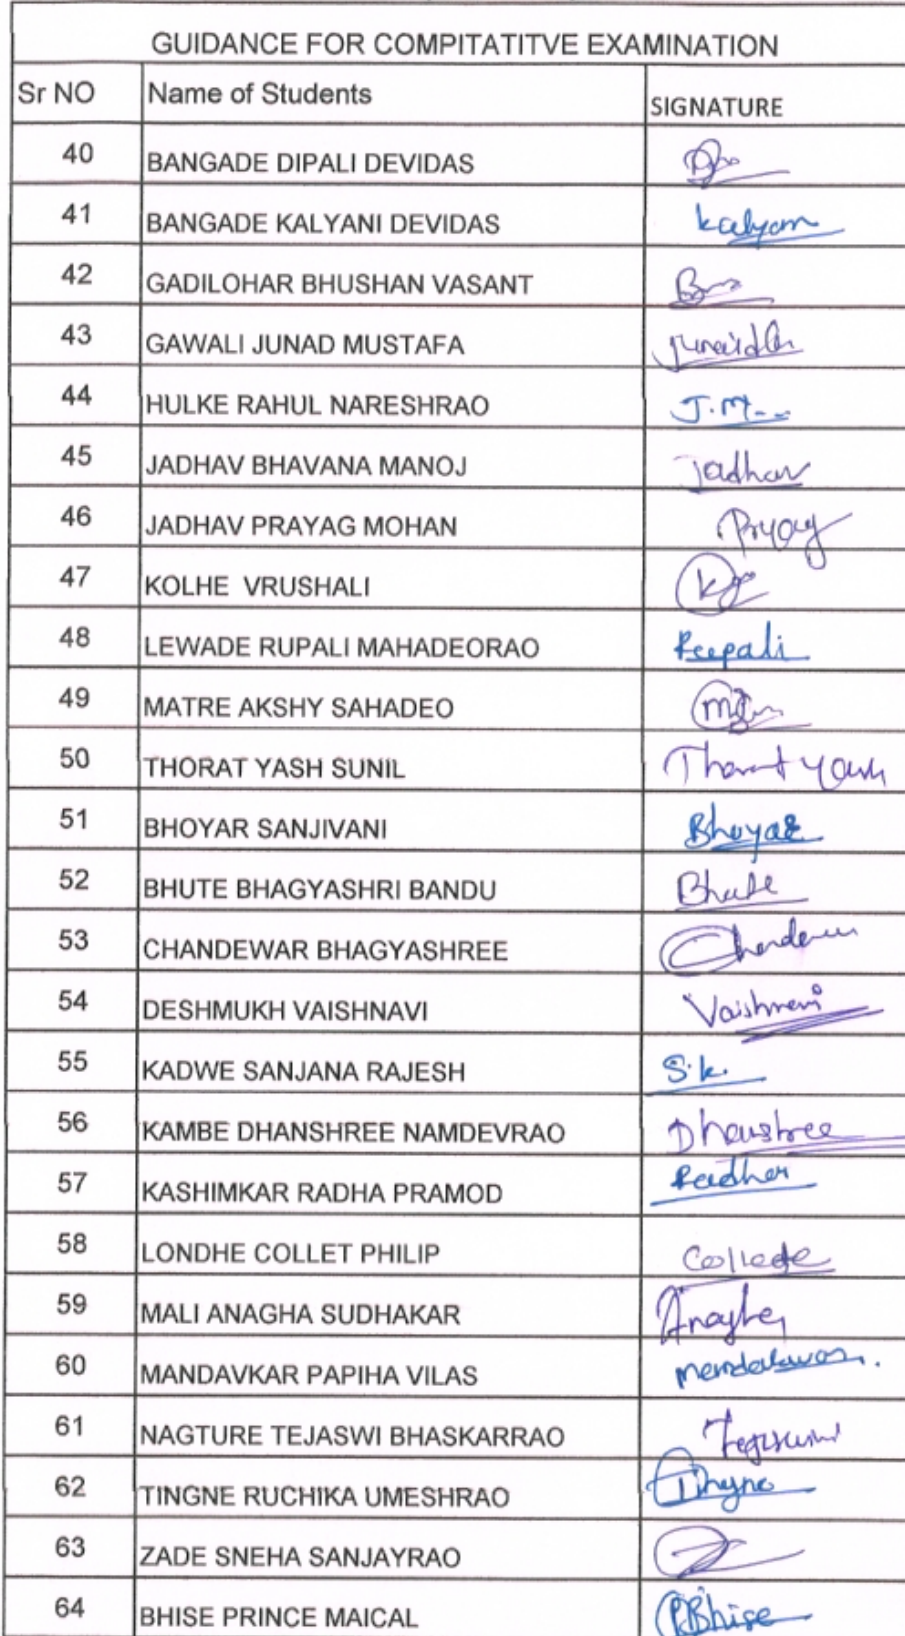 GUIDANCE FOR COMPITATITVE EXAMINATION
Sr NO Name of Students SIGNATURE
40 BANGADE DIPALI DEVIDAS
41 BANGADE KALYANI DEVIDAS kalyani
42 GADILOHAR BHUSHAN VASANT
43 GAWALI JUNAD MUSTAFA
44 HULKE RAHUL NARESHRAO
45 JADHAV BHAVANA MANOJ Jadhav
46 JADHAV PRAYAG MOHAN
47 KOLHE VRUSHALI
48 LEWADE RUPALI MAHADEORAO
49 MATRE AKSHY SAHADEO
50 THORAT YASH SUNIL Thorat Yash
51 BHOYAR SANJIVANI Bhoyar
52 BHUTE BHAGYASHRI BANDU Bhute
53 CHANDEWAR BHAGYASHREE
54 DESHMUKH VAISHNAVI Vaishnavi
55 KADWE SANJANA RAJESH S.k.
56 KAMBE DHANSHREE NAMDEVRAO Dhanshree
57 KASHIMKAR RADHA PRAMOD
58 LONDHE COLLET PHILIP
59 MALI ANAGHA SUDHAKAR
60 MANDAVKAR PAPIHA VILAS
61 NAGTURE TEJASWI BHASKARRAO
62 TINGNE RUCHIKA UMESHRAO
63 ZADE SNEHA SANJAYRAO
64 BHISE PRINCE MAICAL PBhise